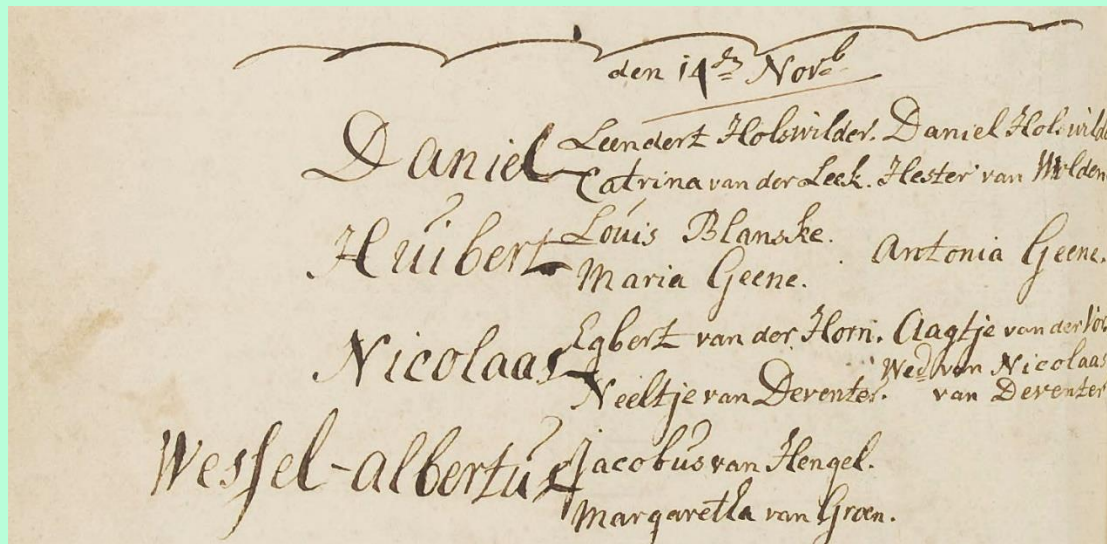 den 14den Novb
Daniel Leendert Holswilder. Daniel Holswilde
Catrina van der Leek. Hester van
Huibert Louis Blanske.
Maria Geene. Antonia Geene.
Nicolaas Egbert van der Horn. Aagtje van der
Wed. van Nicolaas
Neeltje van Deventer. van Deventer
Wessel-albertus Jacobus van Hengel.
Margaretha van Groen.